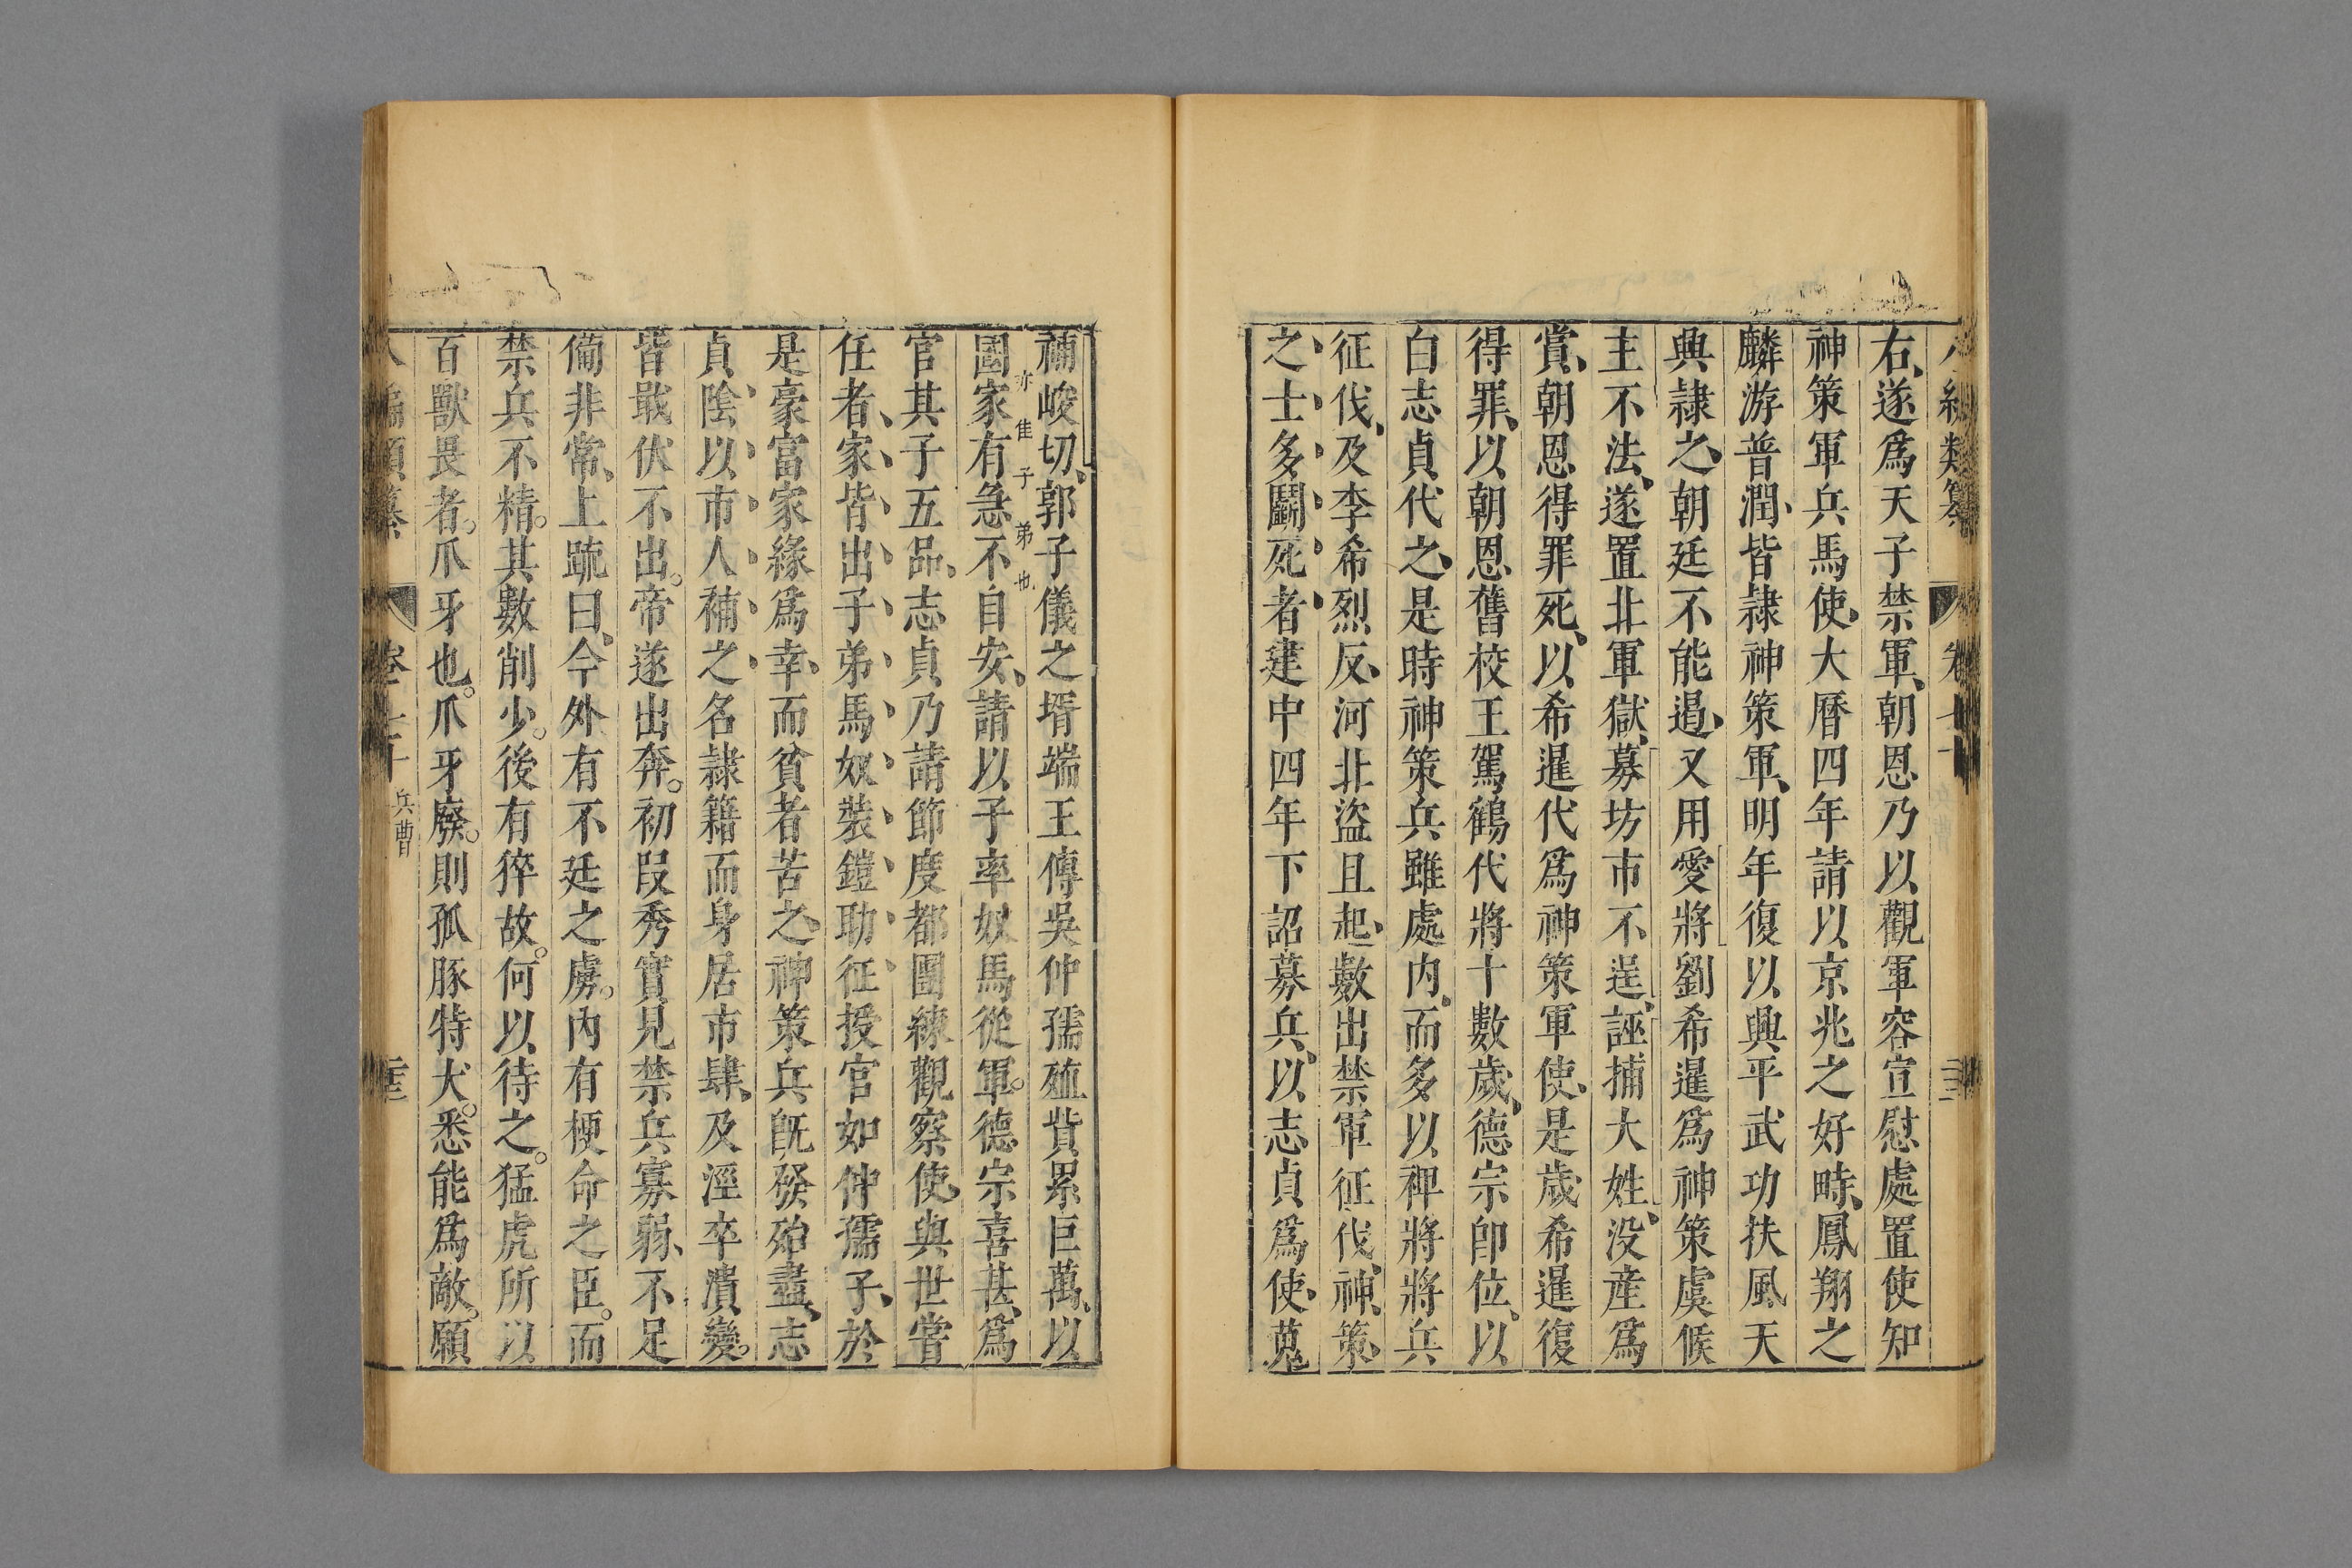 右遂爲天子禁軍朝恩乃以觀軍容宣慰處置使知
神策軍兵馬使大曆四年請以京兆之好畤鳳翔之
麟游普潤皆隷神策軍明年復以興平武功扶風天
興隷之朝廷不能遏又用愛將劉希暹爲神策虞候
主不法遂置北軍獄募坊市不逞誣捕大姓没産爲
賞朝恩得罪死以希暹代爲神策軍使是歲希暹復
得罪以朝恩舊校王駕鶴代將十數歲德宗卽位以
白志貞代之是時神策兵雖處内而多以裨將將兵
征伐及李希烈反河北盜且起數出禁軍征伐神策
之士多鬬死者建中四年下詔募兵以志貞爲使蒐
補峻切郭子儀之壻端王傅吳仲孺殖貲累巨萬以
亦隹子弟也
國家有急不自安請以子率奴馬從軍。德宗喜甚爲
官其子五品志貞乃請節度都團練觀察使與世嘗
任者家皆出子弟馬奴裝鎧助征授官如仲孺子於
是豪富家緣爲幸而貧者苦之神策兵旣發殆盡志
貞陰以市人補之名隷籍而身居市肆及涇卒潰變。
皆戢伏不出。帝遂出奔。初段秀實見禁兵寡弱不足
備非常上疏曰今外有不廷之虜。内有梗命之臣。而
禁兵不精。其數削少。後有猝故。何以待之。猛虎所以
百獸畏者。爪牙也。爪牙廢。則孤豚特犬。悉能爲敵。願
兵曹